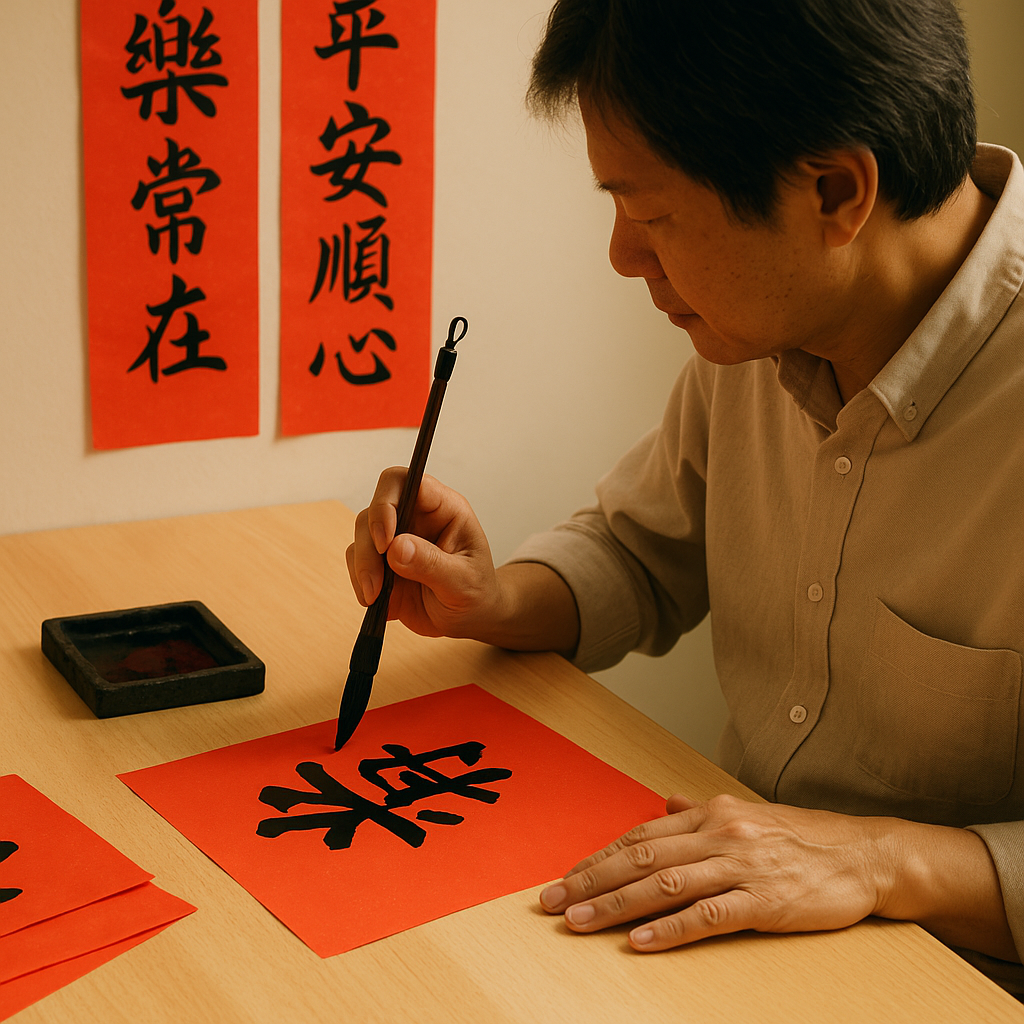 平安順心
樂常在